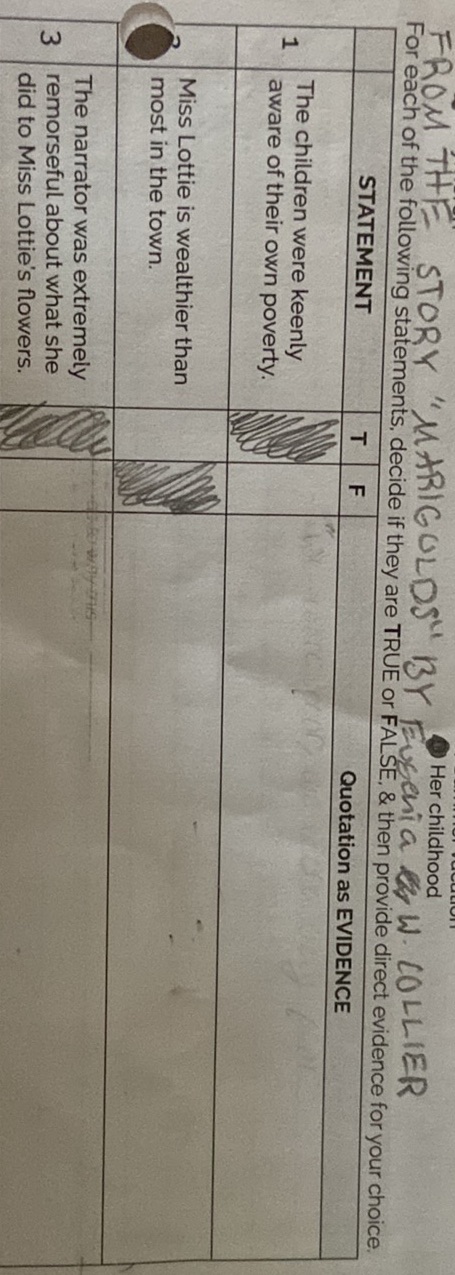 Her childhood
FROM THE STORY "MARIGOLDS" BY Eugenia W. COLLIER
For each of the following statements, decide if they are TRUE or FALSE, & then provide direct evidence for your choice.
STATEMENT T F Quotation as EVIDENCE
1 The children were keenly
aware of their own poverty.
Miss Lottie is wealthier than
most in the town.
3 The narrator was extremely
remorseful about what she
did to Miss Lottie's flowers.